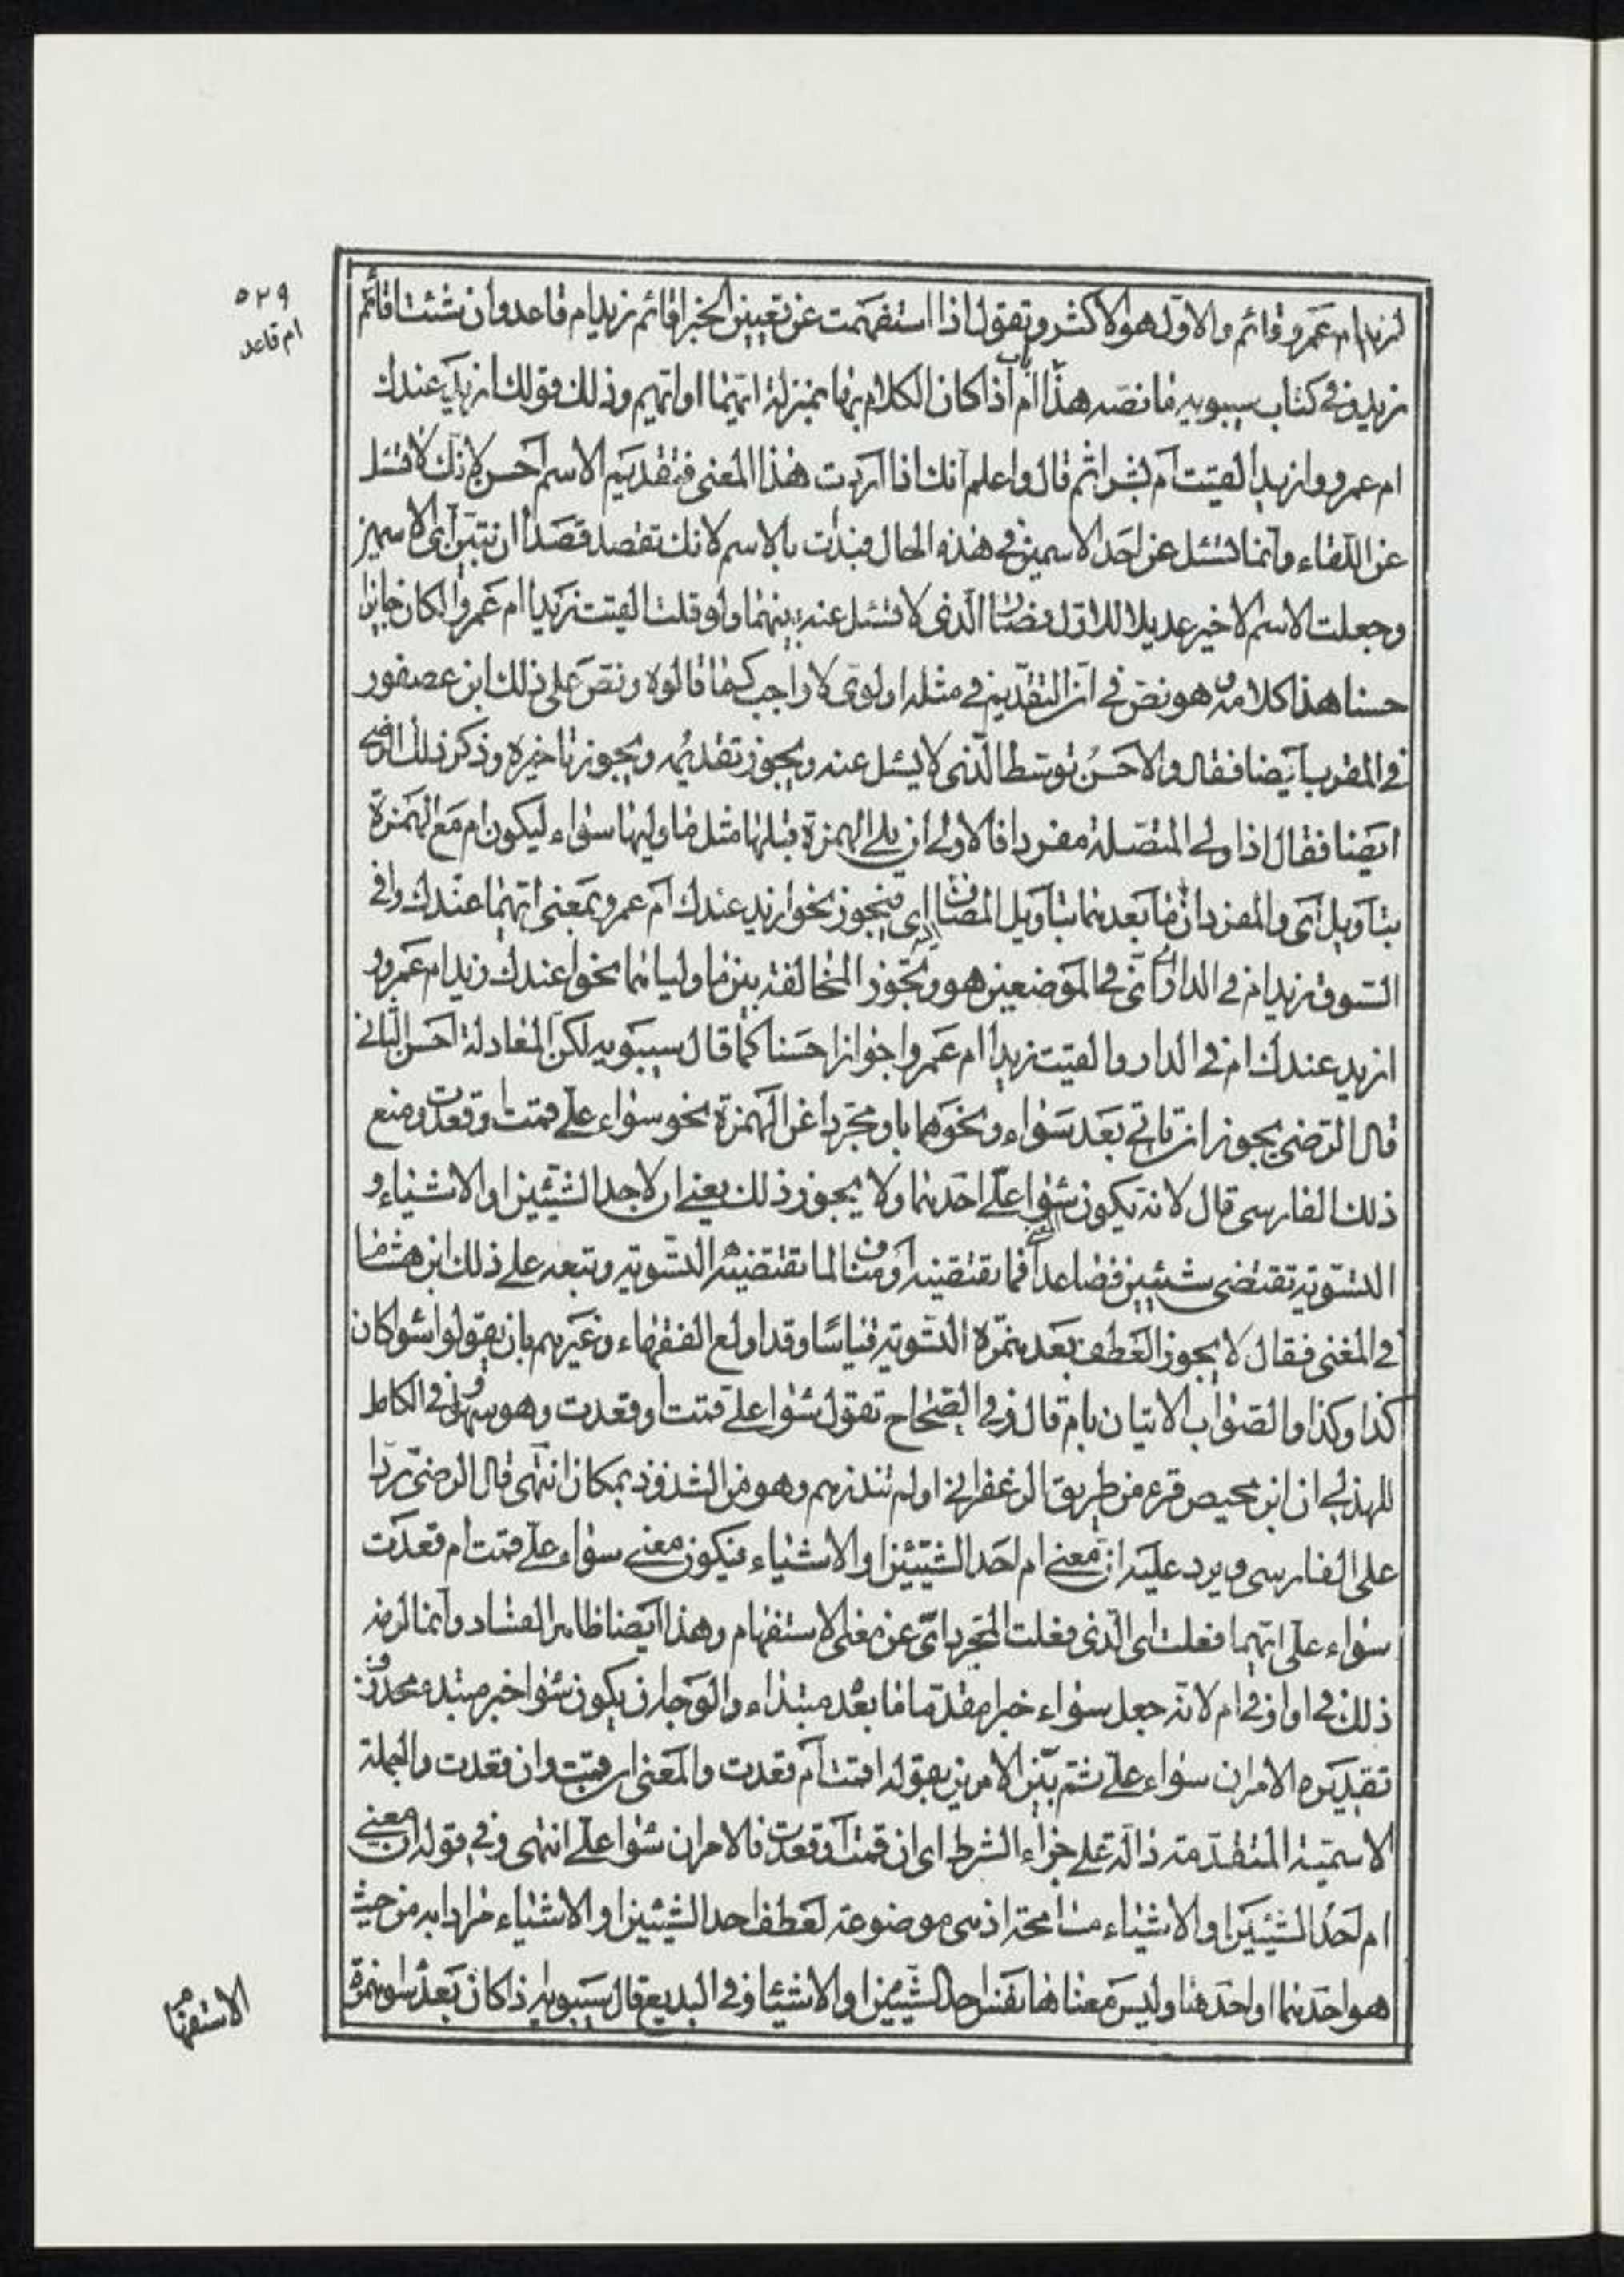 ٥٢٩
ام قاعد
ازيد ام عمرو قائم والاول هو الاكثر وتقول اذا استفهمت عن تعيين الخبر اقائم زيد ام قاعد وان شئت اقائم
زيد وفي كتاب سيبويه ما نصه هذا باب ام اذا كان الكلام بها بمنزلة ايهما او ايهم وذلك قولك ازيد عندك
ام عمرو وازيدا لقيت ام بشرا ثم قال واعلم انك اذا اردت هذا المعنى فتقديم الاسم احسن لانك لا تسئل
عن اللقاء وانما تسئل عن احد الاسمين في هذه الحال فبدات بالاسم لانك تقصد قصد ان تبين اى الاسمين
وجعلت الاسم الاخير عديلا للاول فصار الذى لا تسئل عنه بينهما ولو قلت القيت زيدا ام عمروا لكان جايزا
حسنا هذا كلامه وهو نص في ان التقديم في مثله اولوى لا واجب كما قالوه ونص على ذلك ابن عصفور
في المقرب ايضا فقال والاحسن توسط الذى لا يسئل عنه ويجوز تقديمه ويجوز تاخيره وذكر ذلك الرضى
ايضا فقال اذا ولى المتصلة مفرد فالاولى ان يلى الهمزة قبلها مثل ما وليها سواء ليكون ام مع الهمزة
بتاويل اى والمفردان ما بعدهما بتاويل المضاف اليه اى فيجوز نحو ازيد عندك ام عمرو بمعنى ايهما عندك وافى
السوق زيد ام في الدار اى في اى الموضعين هو ويجوز المخالفة بين ما وليانهما نحو اعندك زيد ام عمرو و
ازيد عندك ام في الدار والقيت زيدا ام عمروا جوازا حسنا كما قال سيبويه لكن المعادلة احسن الثانى
قال الرضى يجوز ان تاتى بعد سواء ونحوها باو مجردا عن الهمزة نحو سواء على قمت او قعدت ومنع
ذلك الفارسى قال لانه يكون سواء على احدهما ولا يجوز ذلك يعنى ان او لاحد الشيئين او الاشياء و
التسوية تقتضى شيئين فصاعدا فما تقتضيه او مناف لما تقتضيه التسوية وتبعه على ذلك ابن هشام
في المغنى فقال لا يجوز العطف بعد همزة التسوية قياسا وقد اولع الفقهاء وغيرهم بان يقولوا سواء كان
كذا او كذا والصواب الاتيان بام قال وفي الصحاح تقول سواء على قمت او قعدت وهو سهو وفي الكامل
للهذلى ان ابن محيصن قرء من طريق الزعفرانى او لم تنذرهم وهو من الشذوذ بمكان انتهى قال الرضى ردا
على الفارسى ويرد عليه ان معنى ام احد الشيئين او الاشياء فيكون معنى سواء على قمت ام قعدت
سواء على ايهما فعلت اى الذى فعلت لتجرد اى عن معنى الاستفهام وهذا ايضا ظاهر الفساد وانما لزمه
ذلك في او وفي ام لانه جعل سواء خبرا مقدما ما بعده مبتداء والوجه ان يكون سواء خبر مبتدء محذوف
تقديره الامران سواء على ثم بين الامرين بقوله اقمت ام قعدت والمعنى ان قمت وان قعدت والجملة
الاسمية المتقدمة دالة على جزاء الشرط اى ان قمت او قعدت فالامران سواء على انتهى وفي قوله ان معنى
ام احد الشيئين او الاشياء مسامحة اذ هى موضوعة لعطف احد الشيئين او الاشياء مرادا به من حيث
هو احدهما او احدها وليس معناها نفس احد الشيئين او الاشياء وفي البديع قال سيبويه اذا كان بعد سواء همزة
الاستفهام